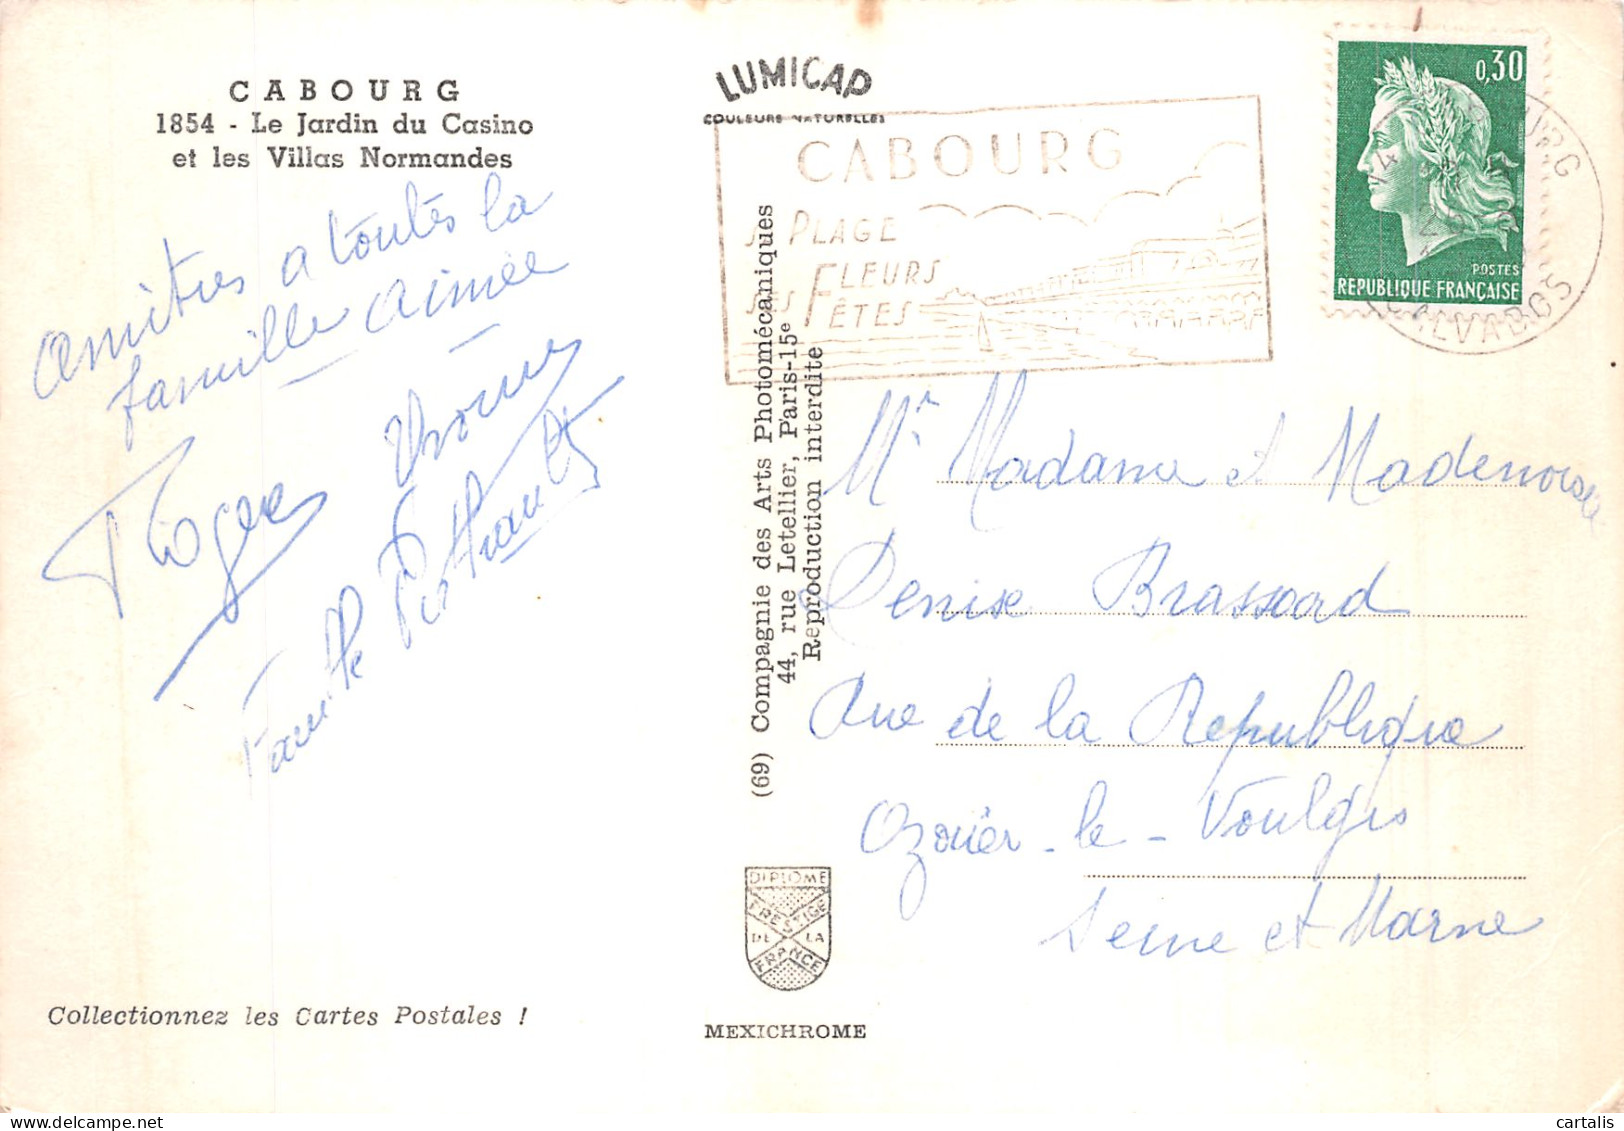 CABOURG
1854 - Le Jardin du Casino
et les Villas Normandes
Amitiés a toutes la
famille aimée
Roger Yvonne
Famille
Collectionnez les Cartes Postales !
LUMICAP
COULEURS NATURELLES
CABOURG
SA PLAGE
SES FLEURS
SES FÊTES
(69) Compagnie des Arts Photomécaniques
44, rue Letellier, Paris-15e
Reproduction interdite
DIPLOME
PRESTIGE
DE LA
FRANCE
MEXICHROME
0,30
POSTES
REPUBLIQUE FRANÇAISE
14 CABOURG
CALVADOS
Mr Madame et Mademoiselle
Denise Brassard
Rue de la République
Ozouër-le-Voulgis
Seine et Marne
cartalis
delcampe.net